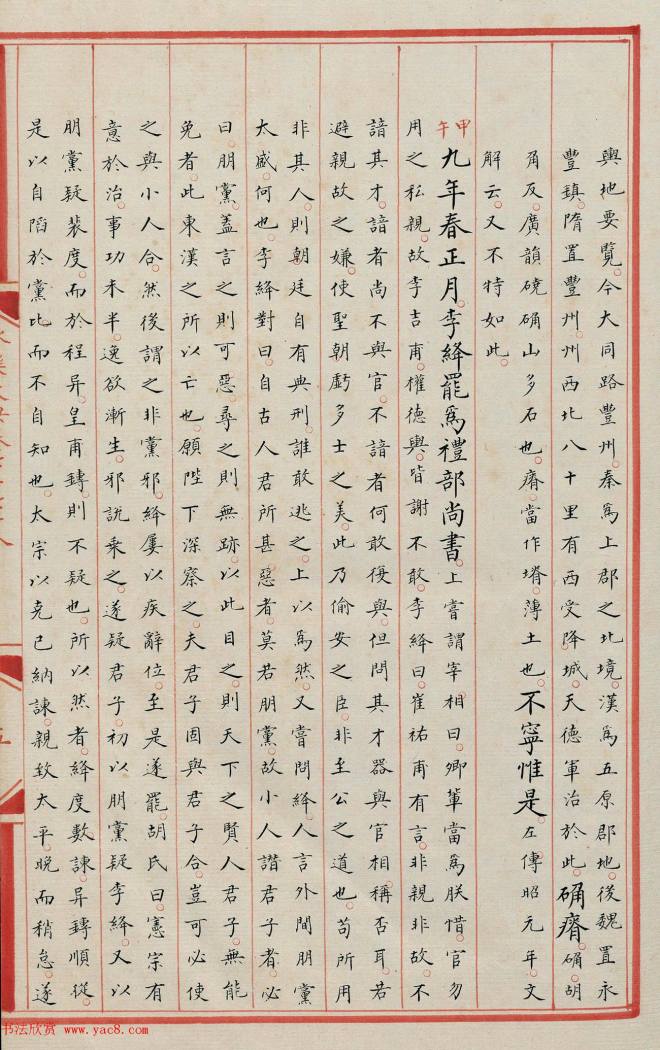 輿地要覽。今大同路豐州。秦爲上郡之北境。漢爲五原郡地。後魏置永
豐鎮。隋置豐州。州西北八十里有西受降城。天德軍治於此。确瘠。确。胡
角反。廣韻磽确山多石也。瘠。當作塉。薄土也。不寧惟是。左傳昭元年。文
解云。又不特如此。
甲午九年春正月。李絳罷爲禮部尚書。上嘗謂宰相曰。卿輩當爲朕惜官。勿
用之私親故。李吉甫。權德輿。皆謝不敢。李絳曰。崔祐甫有言。非親非故。不
諳其才。諳者尚不與官。不諳者何敢復與。但問其才器與官相稱否耳。若
避親故之嫌。使聖朝虧多士之美。此乃偷安之臣。非至公之道也。苟所用
非其人。則朝廷自有典刑。誰敢逃之。上以爲然。又嘗問絳。人言外間朋黨
太盛。何也。李絳對曰。自古人君所甚惡者。莫若朋黨。故小人譖君子者。必
曰。朋黨。蓋言之則可惡。尋之則無跡。以此目之。則天下之賢人君子。無能
免者。此東漢之所以亡也。願陛下深察之。夫君子固與君子合。豈可必使
之與小人合。然後謂之非黨邪。絳屢以疾辭位。至是遂罷。胡氏曰。憲宗有
意於治。事功未半。逸欲漸生。邪說乘之。遂疑君子。初以朋黨疑李絳。又以
朋黨疑裴度。而於程异。皇甫鎛。則不疑也。所以然者。絳度數諫。异鎛順從。
是以自陷於黨比而不自知也。太宗以克己納諫。親致太平。晚而稍怠。遂
书法欣赏 www.yac8.com